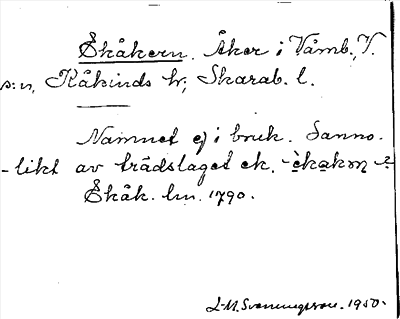 Ekåkern. Åker i Våmb, V.
s:n, Kåkinds hr, Skarab. l.
Namnet ej i bruk. Sanno-
likt av trädslaget ek. -èkakǝn-
Ekåk. lm. 1790.
L-M. Svenningsson. 1950.